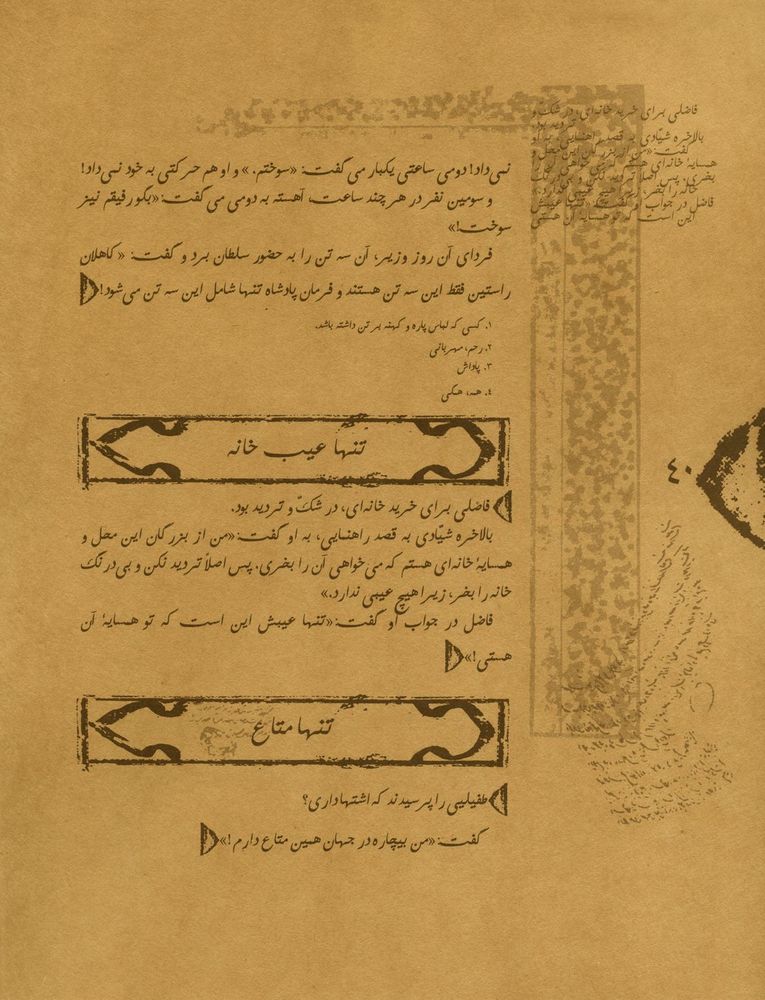 نمی‌داد! دومی ساعتی یکبار می‌گفت: «سوختم.» و او هم حرکتی به خود نمی‌داد!
و سومین نفر در هر چند ساعت، آهسته به دومی می‌گفت: «بگو رفیقم نیز
سوخت!»
فردای آن روز وزیر، آن سه تن را به حضور سلطان برد و گفت: «کاهلان
راستین فقط این سه تن هستند و فرمان پادشاه تنها شامل این سه تن می‌شود!
۱. کسی که لباس پاره و کهنه بر تن داشته باشد.
۲. رحم، مهربانی
۳. پاداش
۴. همه، همگی
تنها عیب خانه
فاضلی برای خرید خانه‌ای، در شکّ و تردید بود.
بالاخره شیّادی به قصد راهنمایی، به او گفت: «من از بزرگان این محل و
همسایهٔ خانه‌ای هستم که می‌خواهی آن را بخری. پس اصلاً تردید نکن و بی‌درنگ
خانه را بخر، زیرا هیچ عیبی ندارد.»
فاضل در جواب او گفت: «تنها عیبش این است که تو همسایهٔ آن
هستی!»
تنها متاع
طفیلیی را پرسیدند که اشتها داری؟
گفت: «من بیچاره در جهان همین متاع دارم!»
۴۰
فاضلی برای خرید خانه‌ای، در شکّ و
تردید بود.
بالاخره شیّادی به قصد راهنمایی، به او
گفت: «من از بزرگان این محل و
همسایهٔ خانه‌ای هستم
بخری. پس اصلاً تردید نکن و
خانه را بخر، زیرا هیچ عیبی ندارد.»
فاضل در جواب او گفت: «تنها عیبش
این است که تو همسایهٔ آن هستی